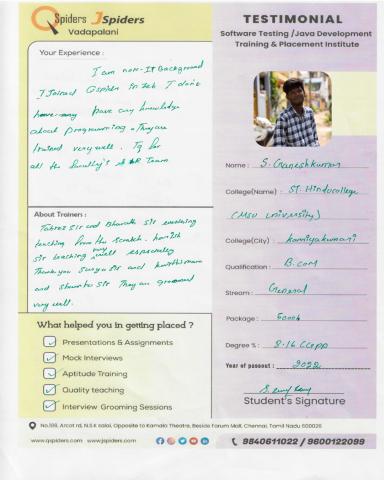 QSpiders JSpiders
Vadapalani
TESTIMONIAL
Software Testing /Java Development
Training & Placement Institute
Your Experience :
I am non-IT Background
I Joined Qspider in feb I don't
have any knowledge
about programming. They are
trained very well. Tq for
all the faculty's & HR Team
Name : S. Ganeshkumar
College(Name) : ST. Hindu college
(MSU University)
College(City) : Kanniyakumari
Qualification : B.com
Stream : General
Package :
Degree % : 8.16 CGPA
Year of passout : 2022
Student's Signature
About Trainers :
Sir and Bharath Sir
teaching from the scratch.
Sir teaching very well especially
Thank you Surya Sir and
and Sir They are groomed
very well.
What helped you in getting placed ?
Presentations & Assignments
Mock Interviews
Aptitude Training
Quality teaching
Interview Grooming Sessions
No.188, Arcot rd, N.S.K salai, Opposite to Kamala Theatre, Beside Forum Mall, Chennai, Tamil Nadu 600026
www.qspiders.com www.jspiders.com
9840611022 / 9600122099